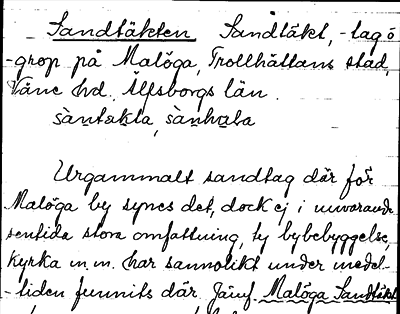 Sandtäkten Sandtäkt, -tag o
-grop på Malöga, Trollhättans stad,
Väne hd. Älfsborgs län.
sàntakta, sànhala
Urgammalt sandtag där för
Malöga by synes det, dock ej i nuvarande
sentida stora omfattning, ty bybebyggelse,
kyrka m.m. har sannolikt under medel-
-tiden funnits där. Jämf. Malöga Sandtäkt